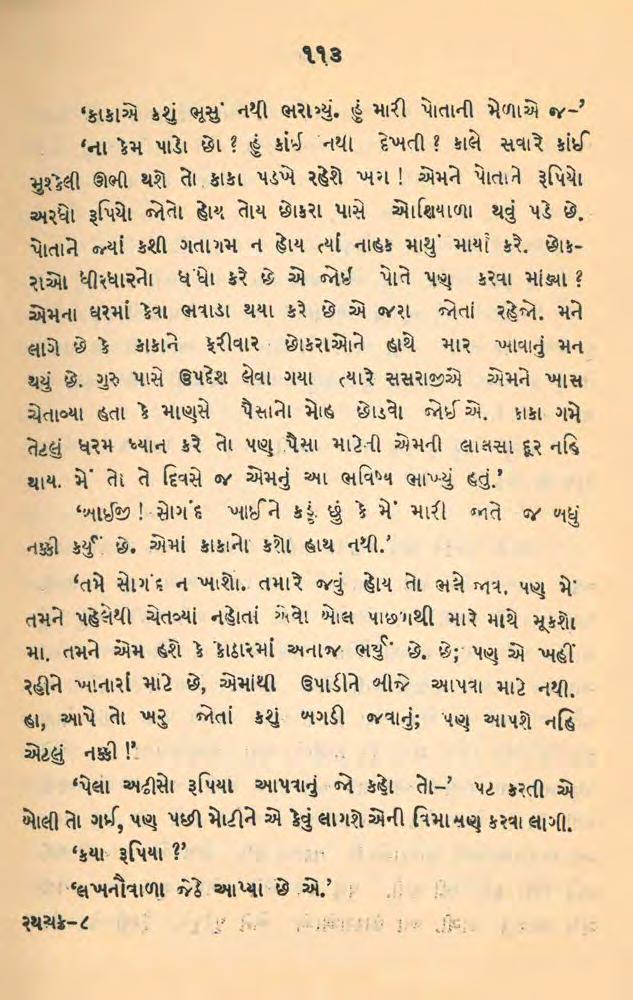 ૧૧૩
‘કાકાએ કશું ભૂસું નથી ભરાવ્યું. હું મારી પોતાની મેળાએ જ–’
‘ના કેમ પાડો છો ? હું કાંઈ નથી દેખતી ? કાલે સવારે કાંઈ
મુશ્કેલી ઊભી થશે તો કાકા પડખે રહેશે ખરા ! એમને પોતાને રૂપિયો
અરધો રૂપિયો જોતો હોય તોય છોકરા પાસે ઓશિયાળા થવું પડે છે.
પોતાને જ્યાં કશી ગતાગમ ન હોય ત્યાં નાહક માથું માર્યા કરે. છોક-
રાઓ ધીરધારનો ધંધો કરે છે એ જોઈ પોતે પણ કરવા માંડ્યા ?
એમના ઘરમાં કેવા ભવાડા થયા કરે છે એ જરા જોતાં રહેજો. મને
લાગે છે કે કાકાને ફરીવાર છોકરાઓને હાથે માર ખાવાનું મન
થયું છે. ગુરુ પાસે ઉપદેશ લેવા ગયા ત્યારે સસરાજીએ એમને ખાસ
ચેતાવ્યા હતા કે માણસે પૈસાનો મોહ છોડવો જોઈએ. કાકા ગમે
તેટલું ધરમ ધ્યાન કરે તો પણ પૈસા માટેની એમની લાલસા દૂર નહિ
થાય. મેં તો તે દિવસે જ એમનું આ ભવિષ્ય ભાખ્યું હતું.’
‘બાઈજી ! સોગંદ ખાઈને કહું છું કે મેં મારી જાતે જ બધું
નક્કી કર્યું છે. એમાં કાકાનો કશો હાથ નથી.’
‘તમે સોગંદ ન ખાશો. તમારે જવું હોય તો ભલે જાવ. પણ મેં
તમને પહેલેથી ચેતવ્યાં નહોતાં એવો બોલ પાછળથી મારે માથે મૂકશો
મા. તમને એમ હશે કે કોઠારમાં અનાજ ભર્યું છે. છે; પણ એ અહીં
રહીને ખાનારાં માટે છે, એમાંથી ઉપાડીને બીજે આપવા માટે નથી.
હા, આપે તો ખરુ જોતાં કશું બગડી જવાનું; પણ આપશે નહિ
એટલું નક્કી !’
‘પેલા અઢીસો રૂપિયા આપવાનું જો કહો તો–’ પટ કરતી એ
બોલી તો ગઈ, પણ પછી મોટીને એ કેવું લાગશે એની વિમાસણ કરવા લાગી.
‘કયા રૂપિયા ?’
‘લખનૌવાળા જેઠે આપ્યા છે એ.’
રથચક્ર–૮